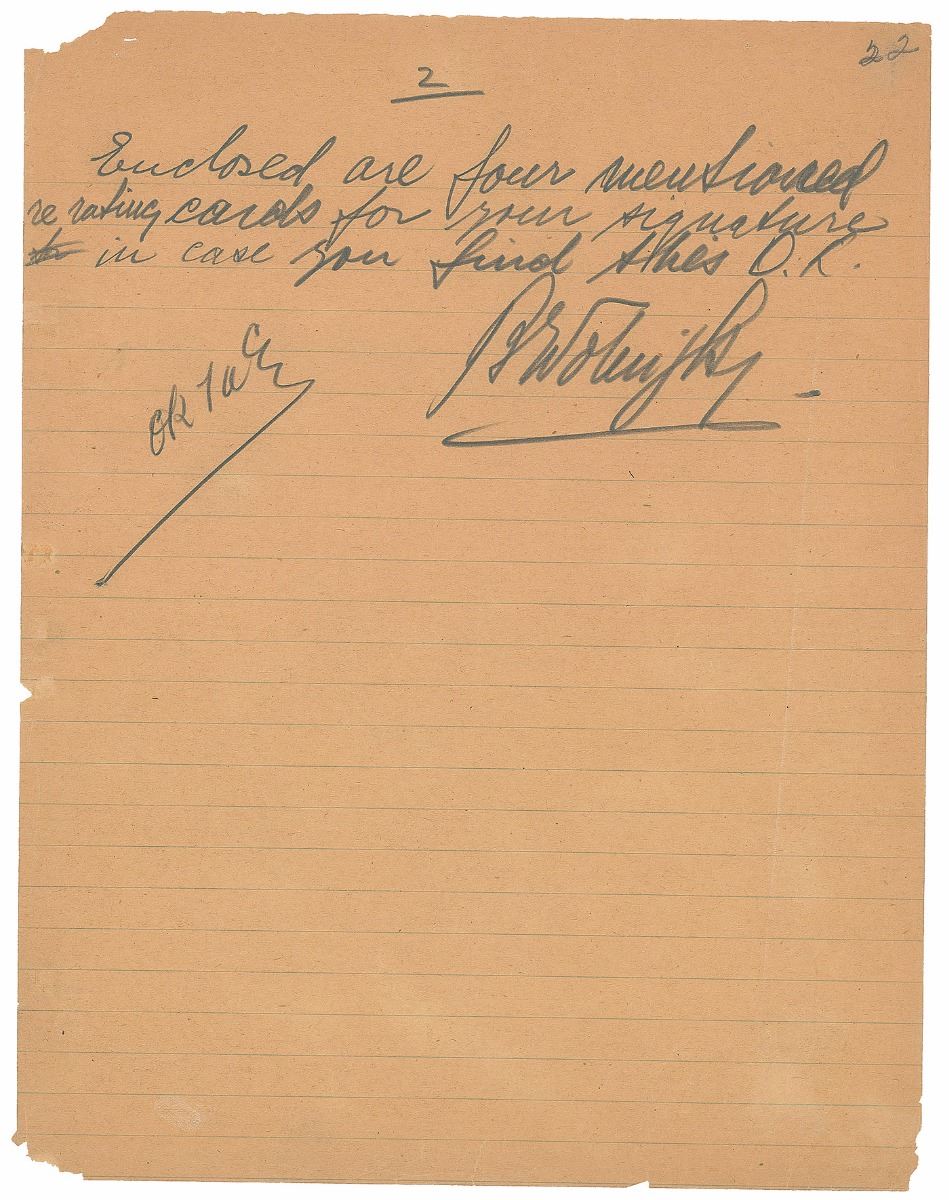 22
2
Enclosed are four mentioned
re rating cards for your signature
in case you find this O.K.
OK